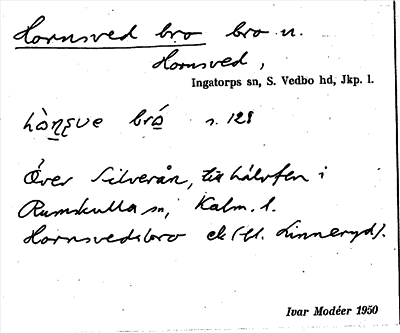 Hornsved bro bro n.
Hornsved,
Ingatorps sn, S. Vedbo hd, Jkp. l.
bró s. 128
Över Silverån, till hälvten i
Rumskulla sn, Kalm. l.
Hornsvedsbro ek (gl. Linneryd).
Ivar Modéer 1950